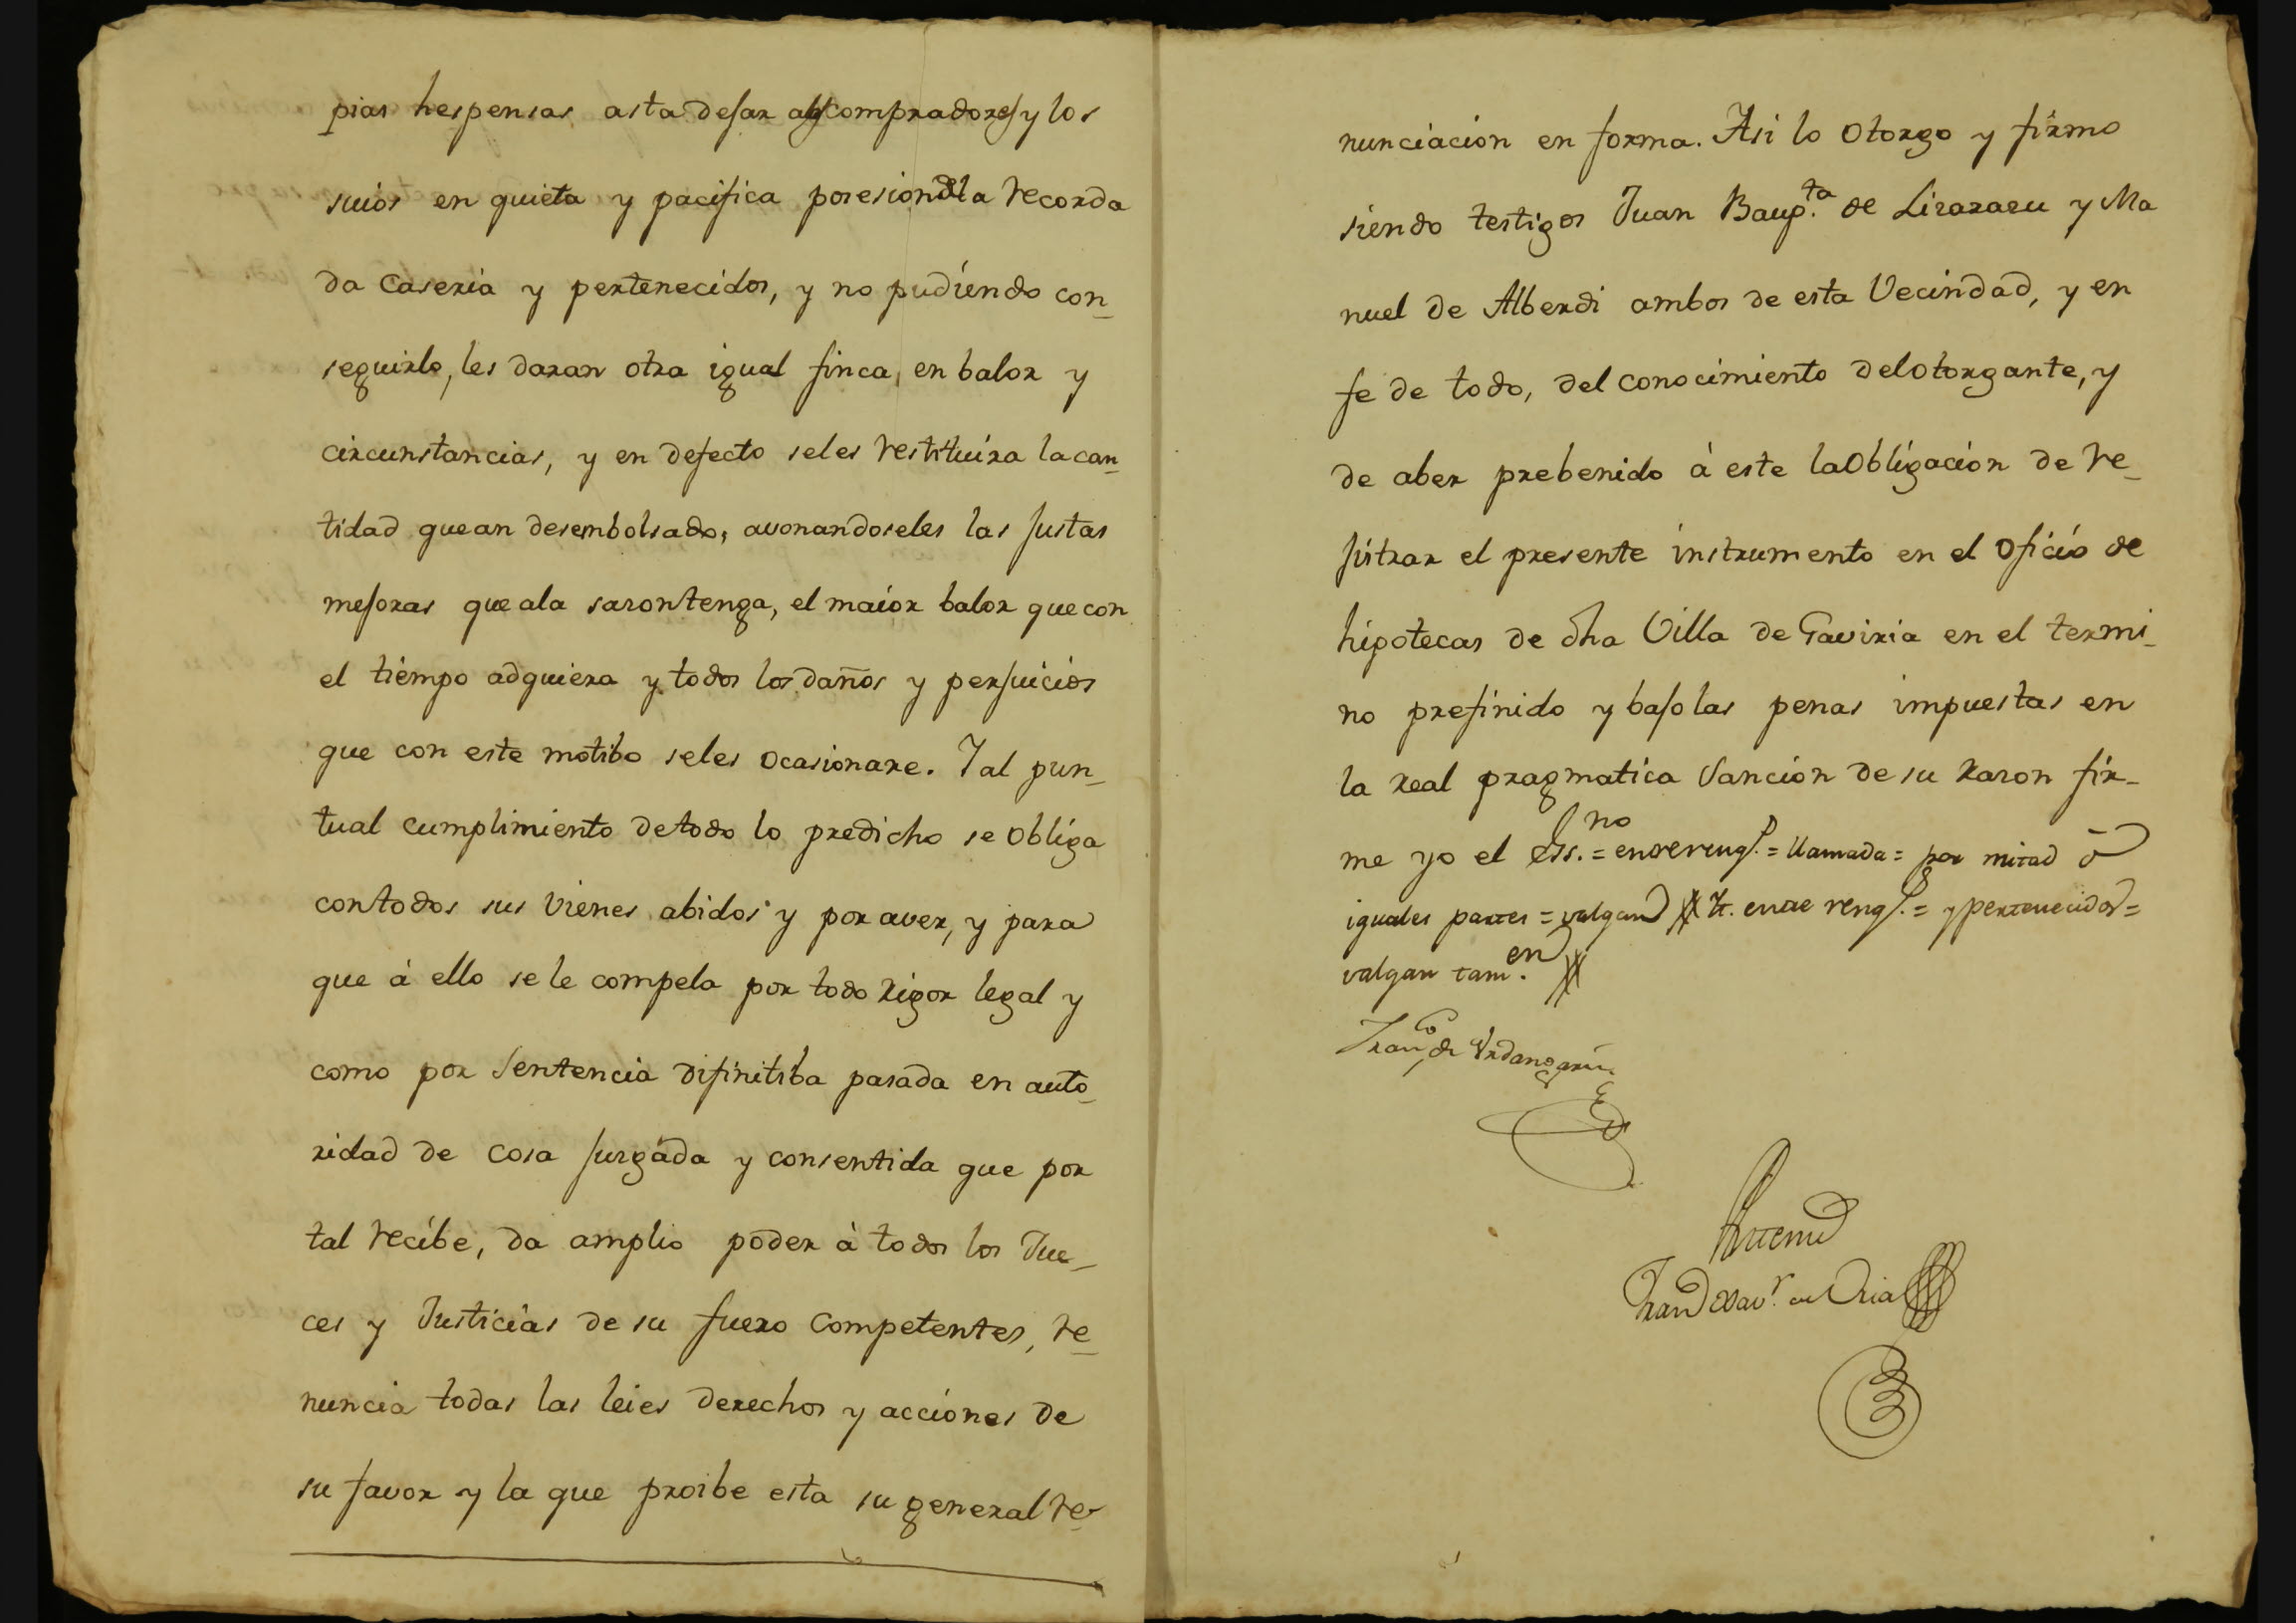 pias hespensas asta dejar a los compradores y los
suios en quieta y pacifica posesion de la recorda
da Caseria y pertenecidos, y no pudiendo con_
seguirlo, les daran otra igual finca, en balor y
circunstancias, y en defecto seles restituira la can_
tidad que an desembolsado, avonandoseles las justas
mejoras que ala sason tenga, el maior balor que con
el tiempo adquiera y todos los daños y perjuicios
que con este motibo seles ocasionare. Y al pun_
tual cumplimiento de todo lo predicho se obliga
con todos sus vienes abidos y por aver, y para
que à ello se le compela por todo rigor legal y
como por Sentencia difinitiba pasada en auto_
ridad de cosa jusgada y consentida que por
tal recibe, da amplio poder à todos los Jue_
ces y Justicias de su fuero Competentes, re_
nuncia todas las leies derechos y acciones de
su favor y la que proibe esta su general re_
nunciacion en forma. Asi lo otorgo y firmo
siendo testigos Juan Baup.ta de Lizarasu y Ma
nuel de Alberdi ambos de esta Vecindad, y en
fe de todo, del conocimiento del otorgante, y
de aber prebenido à este la Obligacion de re_
jistrar el presente instrumento en el Oficio de
hipotecas de dha Villa de Gaviria en el termi_
no prefinido y bajo las penas impuestas en
la real pragmatica Sancion de su rason fir_
me yo el Ess.no = entrerengs. = llamada = por mitad ò
iguales partes = valgan Yt. entre rengs. = y pertenecidos =
valgan tam.en
Fran.co de Urdangarin
Antemi
Fran Xav.r de Oria